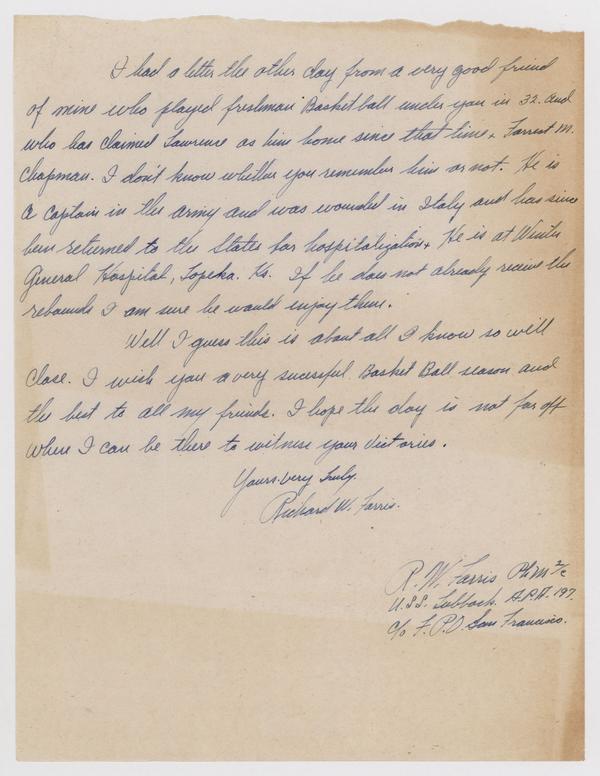 I had a letter the other day from a very good friend
of mine who played freshman Basketball under you in 32. and
who has claimed Lawrence as him home since that time. Forrest M.
Chapman. I don't know whether you remember him or not. He is
a captain in the army and was wounded in Italy and has since
been returned to the States for hospitalization. He is at Winter
General Hospital, Topeka. Ks. If he does not already receive the
rebounds I am sure he would enjoy them.
Well I guess this is about all I know so will
close. I wish you a very sucessful Basket Ball season and
the best to all my friends. I hope the day is not far off
when I can be there to witness your victories.
Yours very truly
Richard W. Farris.
R. W. Farris PhM 2/c
U.S.S. Lubbock. A.P.A. 197.
c/o F.P.O. San Francisco.